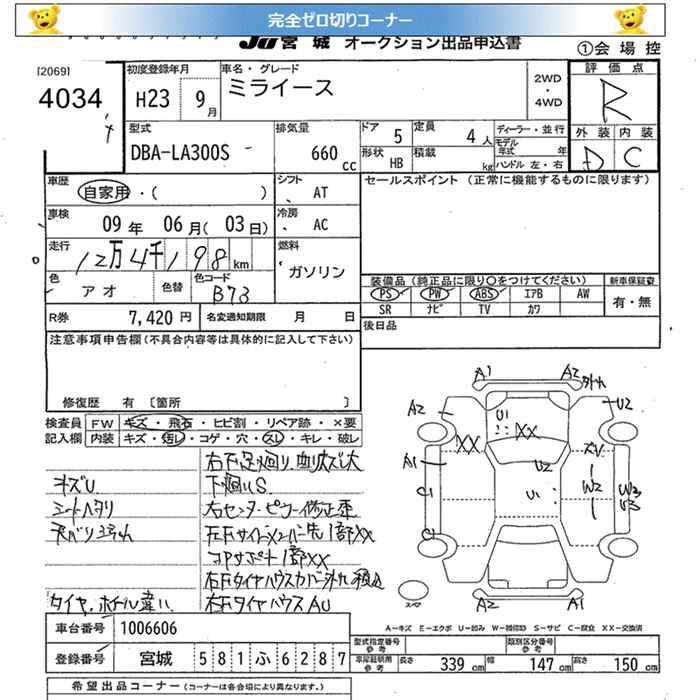 完全ゼロ切りコーナー
JU宮城 オークション出品申込書
①会場控
[2069]
4034
初度登録年月
H23 9月
車名・グレード
ミライース
2WD・4WD
評価点
R
外装 内装
D C
型式
DBA-LA300S
排気量
660 cc
ドア 5
形状 HB
定員 4人
積載 kg
ディーラー・並行
モデル年式 年
ハンドル 左・右
車歴
自家用・( )
シフト
AT
セールスポイント (正常に機能するものに限ります)
車検
09年 06月(03日)
冷房
AC
走行
12万4千198km
燃料
ガソリン
色
アオ
色替
色コード
B73
装備品 (純正品に限り○をつけてください)
新車保証書
PS PW ABS エアB AW
SR ナビ TV カワ
有・無
R券 7,420円
名変通知期限 月 日
後日品
注意事項申告欄(不具合内容等は具体的に記入して下さい)
修復歴 有 〔箇所 〕
検査員記入欄
FW キズ・飛石・ヒビ割・リペア跡・×要
内装 キズ・汚レ・コゲ・穴・スレ・キレ・破レ
キズU
シートヘタリ
タイヤ、ホイール違い
下廻りS
コアサポート1部XX
右FタイヤハウスAU
A1 A2
A2 U2
U1
XX XX
A1 U2
C1 U1 W2 W3
C1
A2 A1
スペア
A-キズ E-エクボ U-凹み W-補修跡 S-サビ C-腐食 XX-交換済
車台番号 1006606
登録番号 宮城 581ふ6287
型式指定番号 参考
類別区分番号 参考
車庫証明用 参考 長さ 339cm 幅 147cm 高さ 150cm
希望出品コーナー (コーナーは各会場により異なります。)